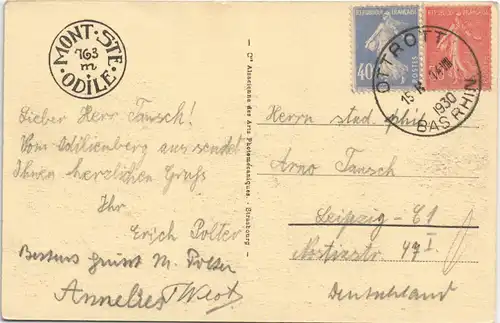 MONT·STE·ODILE·
763
m
Lieber Herr Tausch!
Vom Odilienberg aus sendet
Ihnen herzlichen Gruß
Ihr
Erich Polter
Bestens grüßt M. Polter
Annelies
Cie Alsacienne des Arts Photomécaniques. - Strasbourg -
REPUBLIQUE FRANÇAISE
40
POSTES
OTTROTT
15
1930
BAS RHIN
Herrn stud. phil.
Arno Tausch
Leipzig-C1
49 I.
Deutschland